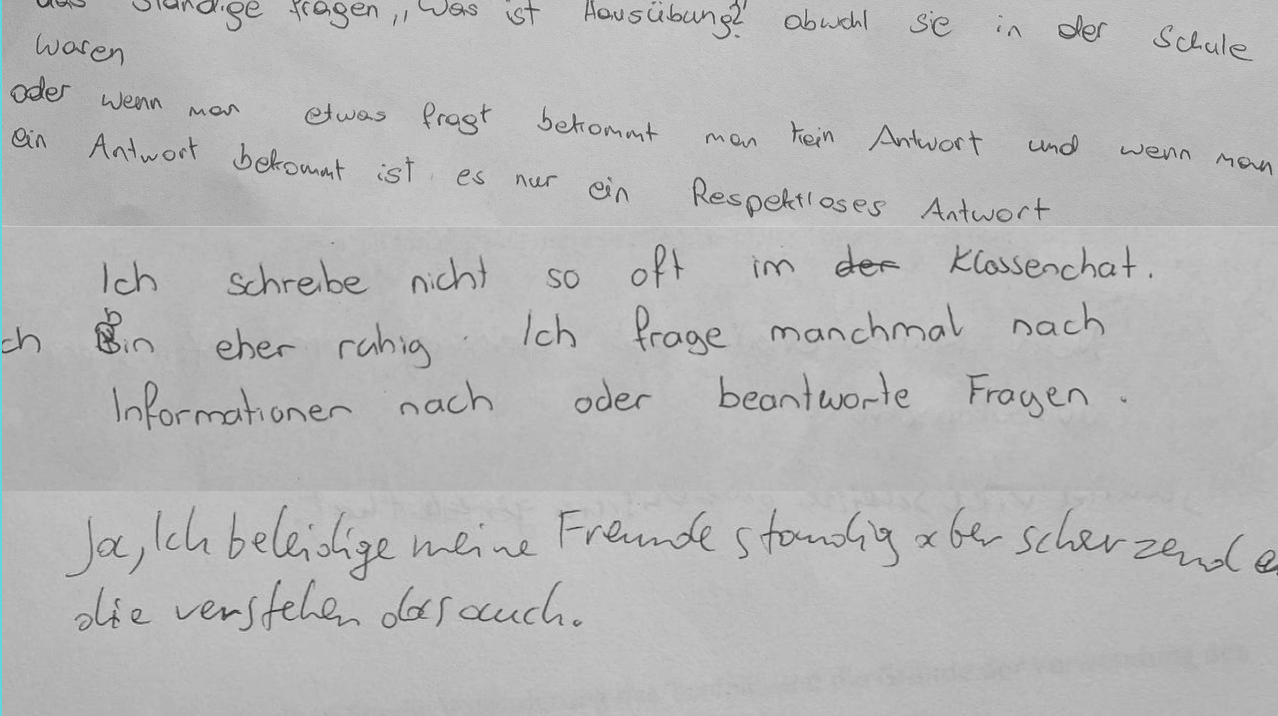 das ständige fragen „Was ist Hausübung?" obwohl sie in der Schule
waren
oder wenn man etwas fragt bekommt man kein Antwort und wenn man
ein Antwort bekommt ist es nur ein Respektloses Antwort
Ich schreibe nicht so oft im der Klassenchat.
ch bin eher ruhig. Ich frage manchmal nach
Informationen nach oder beantworte Fragen.
Ja, Ich beleidige meine Freunde standig aber scherzend
die verstehen das auch.